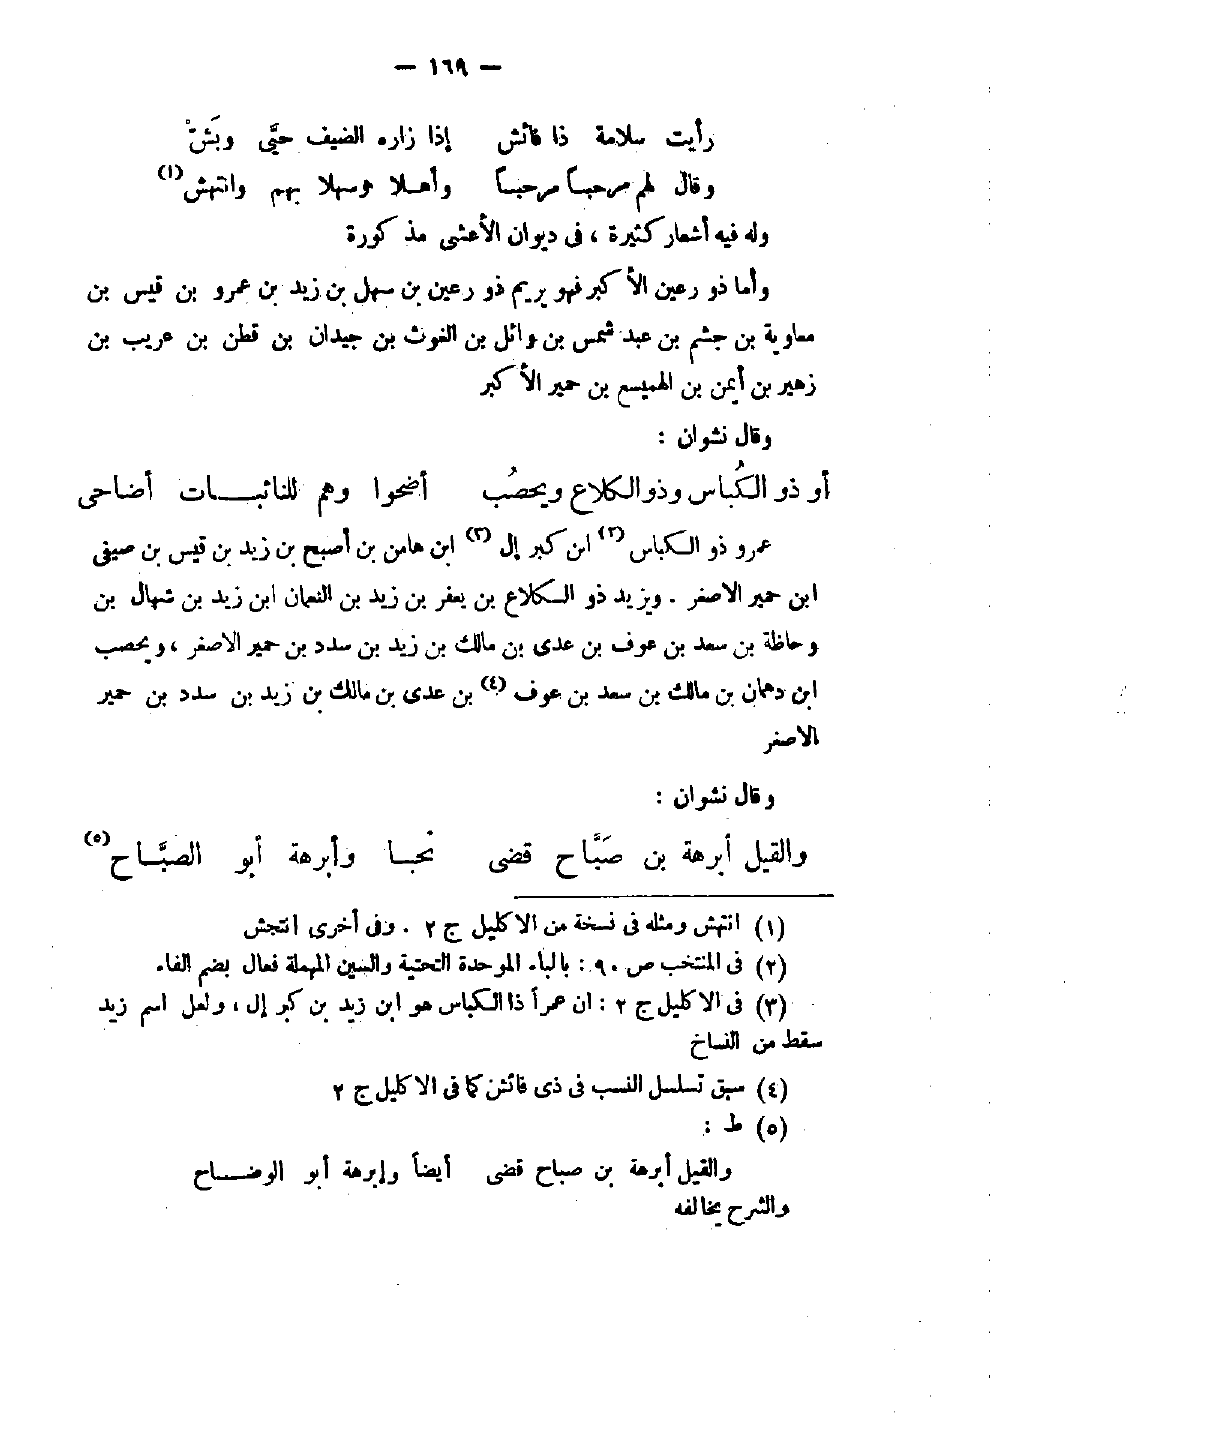 — ١٦٩ —
رأيت سلامة ذا فائش إذا زاره الضيف حيَّى وبَشّْ
وقال لهم مرحباً مرحباً وأهلا وسهلا بهم وانتهش (١)
وله فيه أشعار كثيرة ، فى ديوان الأعشى مذكورة
وأما ذو رعين الأكبر فهو يريم ذو رعين بن سهل بن زيد بن عمرو بن قيس بن
معاوية بن جشم بن عبد شمس بن وائل بن الغوث بن جيدان بن قطن بن عريب بن
زهير بن أيمن بن الهميسع بن حمير الأكبر
وقال نشوان :
أو ذو الكُباس وذو الكلاع ويحصُب أضحوا وهم للنائبـــات أضاحى
عمرو ذو الكباس (٢) ابن كبر إل (٣) ابن هامن بن أصبح بن زيد بن قيس بن صيفى
ابن حمير الاصغر . ويزيد ذو الكلاع بن يعفر بن زيد بن النعمان ابن زيد بن شهال بن
وحاظة بن سعد بن عوف بن عدى بن مالك بن زيد بن سدد بن حمير الاصغر ، ويحصب
ابن دهمان بن مالك بن سعد بن عوف (٤) بن عدى بن مالك بن زيد بن سدد بن حمير
الاصغر
وقال نشوان :
والقيل أبرهة بن صَبَّاح قضى نحبــا وأبرهة أبو الصبَّــاح (٥)
(١) انتهش ومثله فى نسخة من الاكليل ج ٢ . وفى أخرى انتجش
(٢) فى المنتخب ص ٩٠ : بالباء الموحدة التحتية والسين المهملة فعال بضم الفاء
(٣) فى الاكليل ج ٢ : ان عمراً ذا الكباس هو ابن زيد بن كبر إل ، ولعل اسم زيد
سقط من النساخ
(٤) سبق تسلسل النسب فى ذى فائش كما فى الاكليل ج ٢
(٥) ط :
والقيل أبرهة بن صباح قضى أيضاً وإبرهة أبو الوضـــاح
والشرح يخالفه